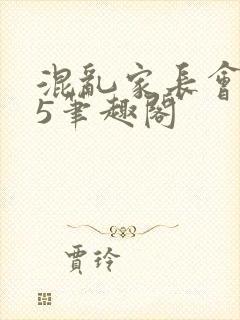 混亂家長會
5筆趣閣
賈玲